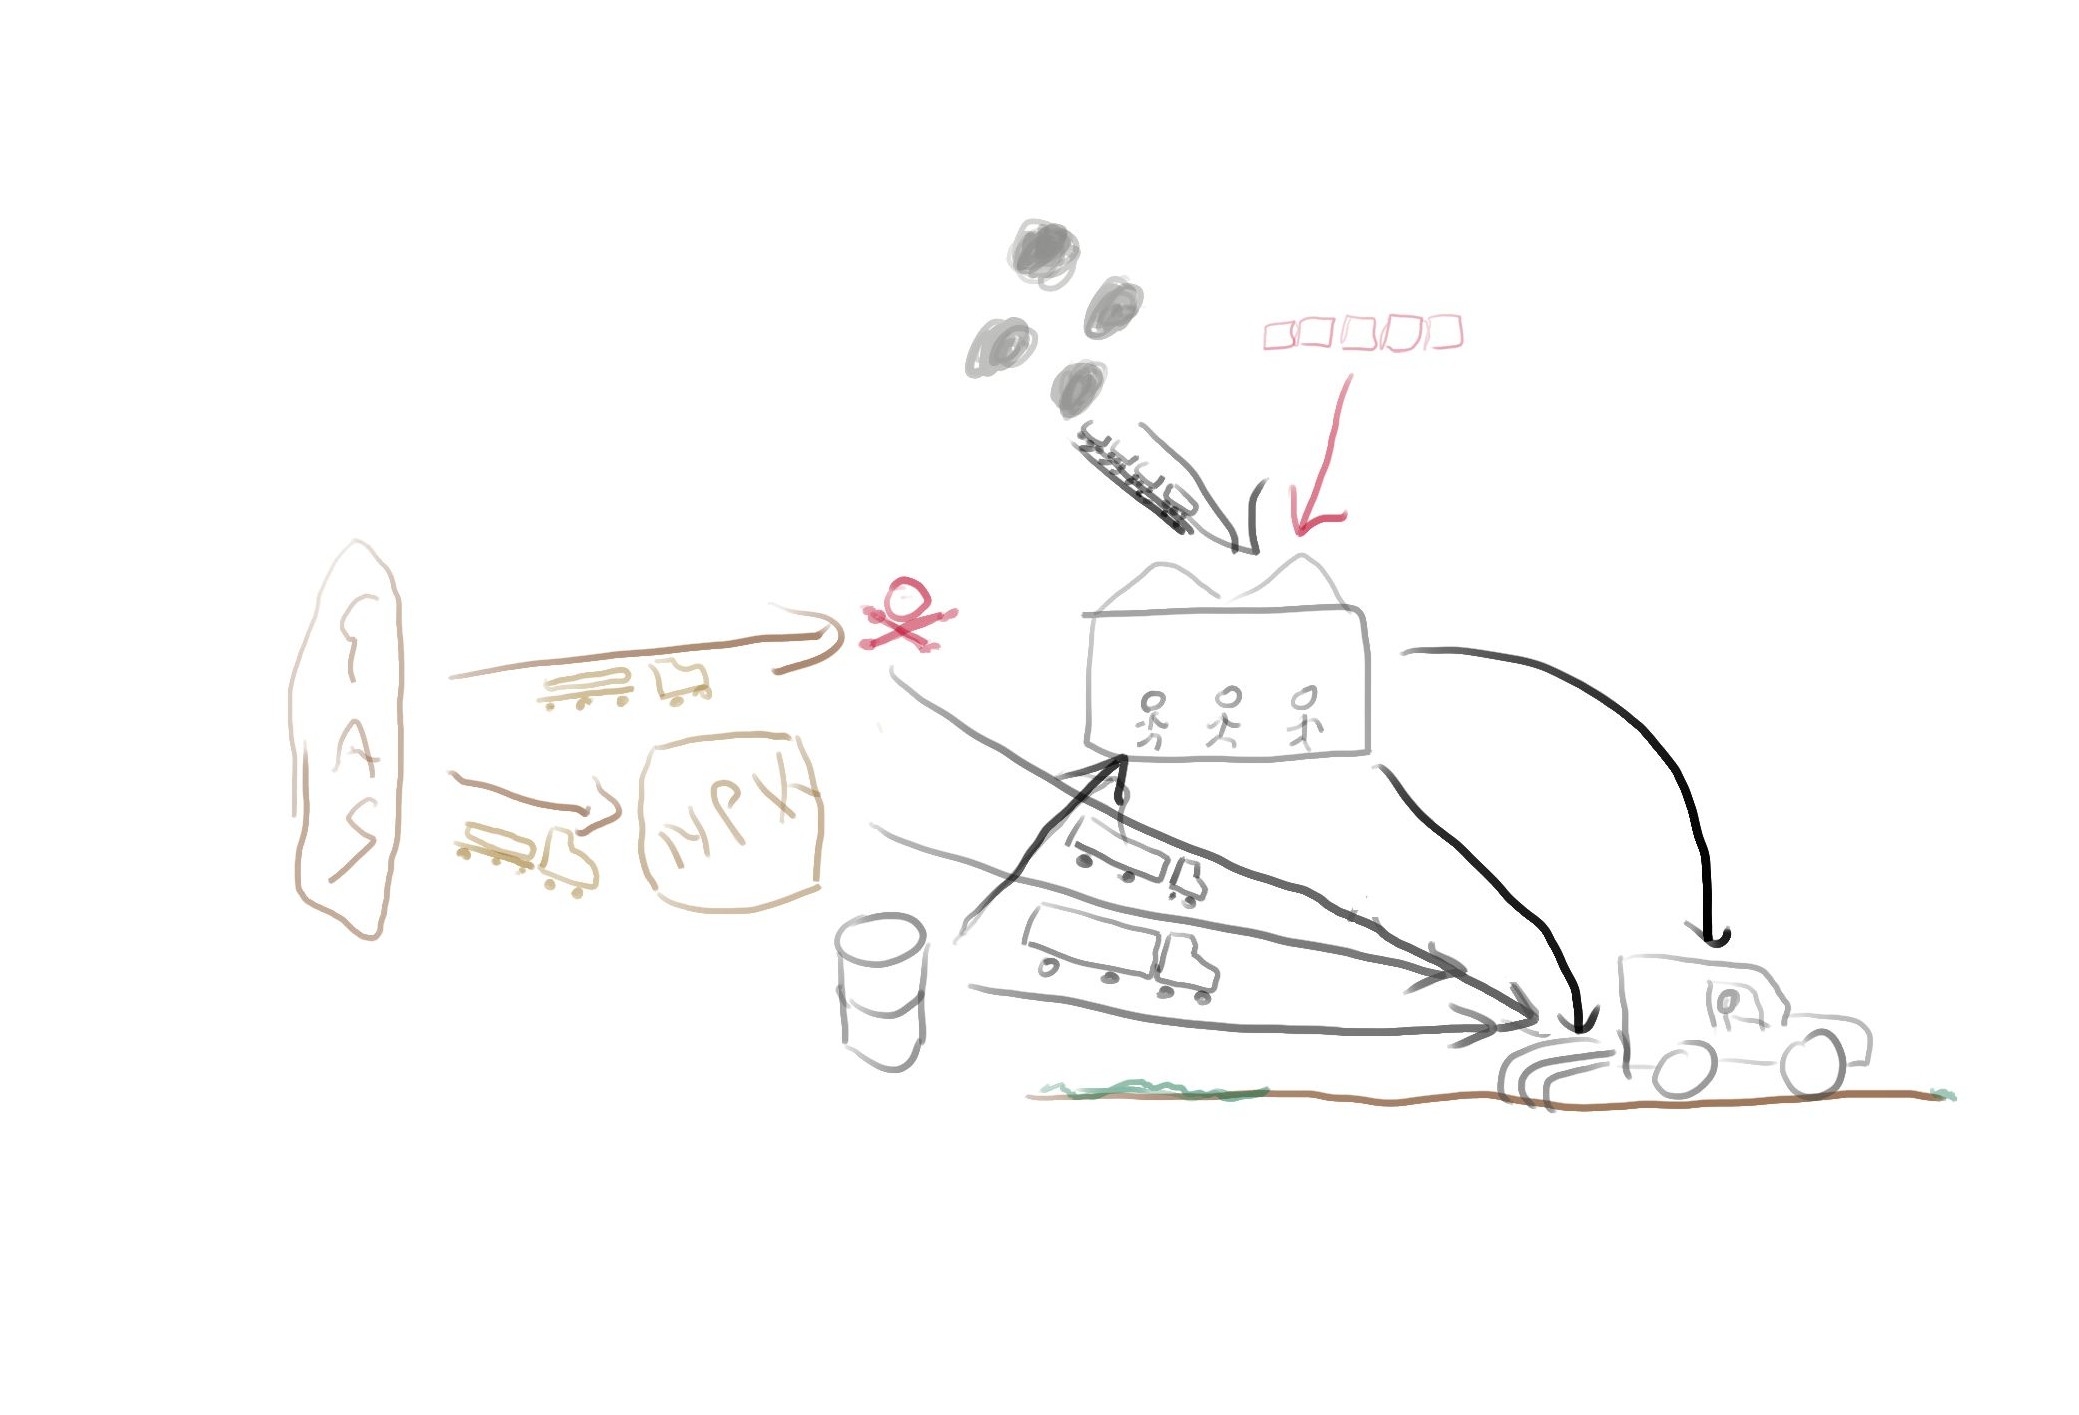 GAS
NPK